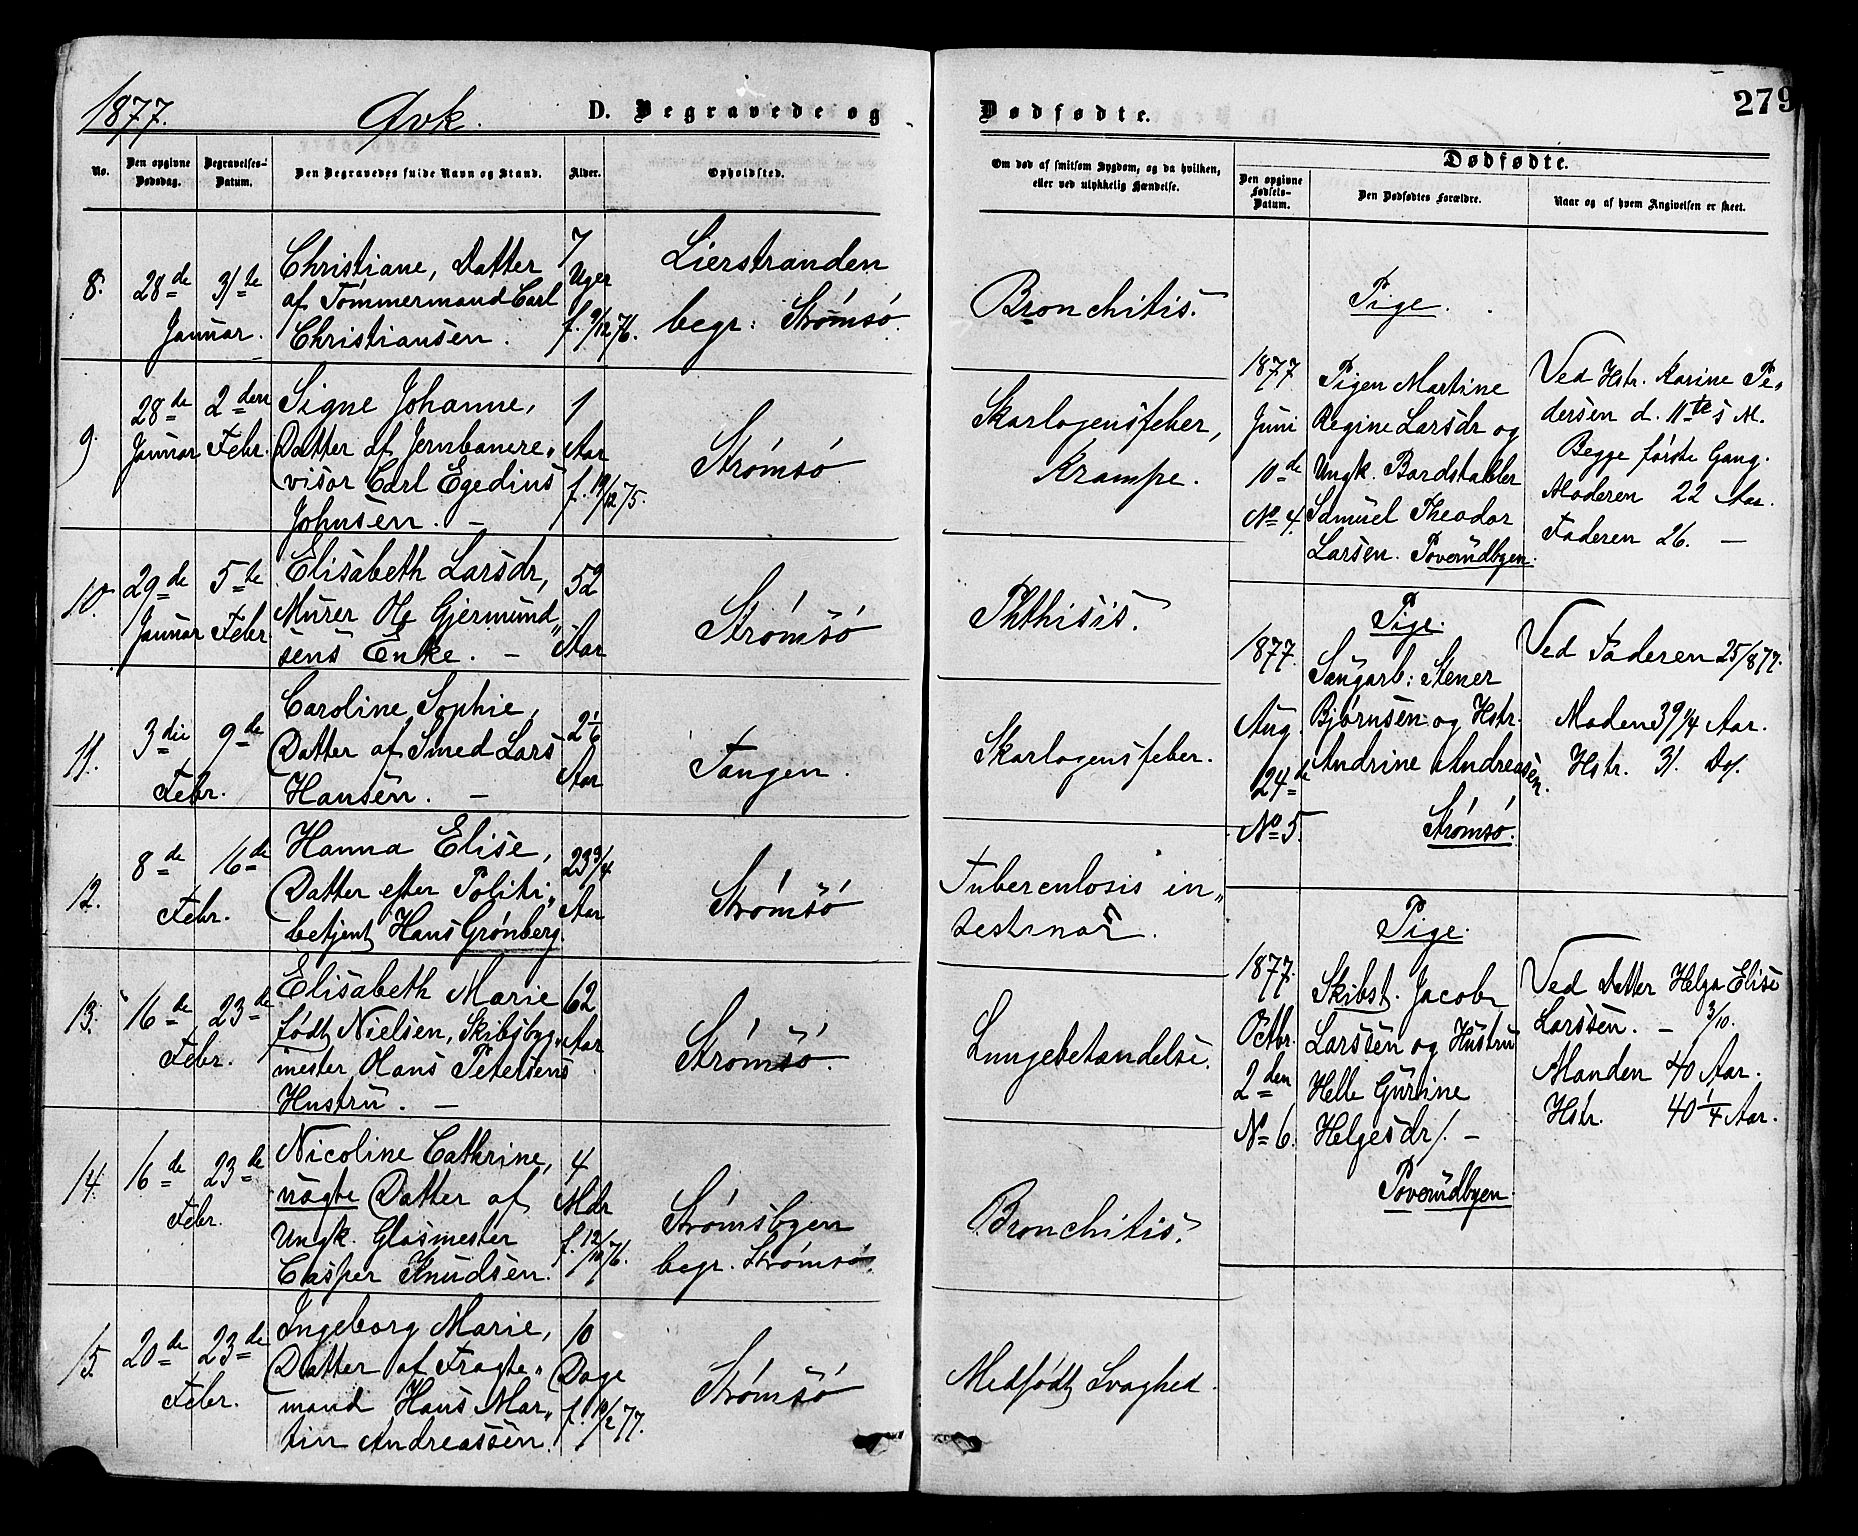 1877. Qvk. D. Begravede og Dødfødte. 279
No.
Den opgivne
Dødsdag.
Begravelses-
Datum.
Den Begravedes fulde Navn og Stand.
Alder.
Opholdsted.
Om død af smitsom Sygdom, og da hvilken,
eller ved ulykkelig Hændelse.
Dødfødte.
Den opgivne
Fødsels-
Datum.
Den Dødfødtes Forældre.
Naar og af hvem Angivelsen er skeet.
8.
28de 31te
Januar.
Christiane, Datter
af Tømmermand Carl
Christiansen.
7
Uger
f. 9/12 76.
Lierstranden
begr: Strømsø.
Bronchitis.
9.
28de
Januar
2den
Febr.
Signe Johanne,
Datter af Jernbanere„
visor Carl Egedius
Johnsen. —
1
Aar
f. 19/12 75.
Strømsø
Skarlagensfeber,
Krampe.
10.
29de
Januar
5te
Febr.
Elisabeth Larsdr,
Murer Ole Gjermund„
sens Enke. —
52
Aar
Strømsø
Phthisis.
11.
3die 9de
Febr.
Caroline Sophie,
Datter af Smed Lars
Hansen. —
2 1/6
Aar
Tangen.
Skarlagensfeber.
12.
8de 16de
Febr.
Hanna Elise,
Datter efter Politi„
betjent Hans Grønberg.
23 3/4
Aar
Strømsø
Tuberculosis in„
testinar.
13.
16de 23de
Febr.
Elisabeth Marie
født Nielsen, Skibsbyg„
mester Hans Petersens
Hustru. —
62
Aar
Strømsø.
Lungebetændelse.
14.
16de 23de
Febr.
Nicoline Cathrine,
uægte Datter af
Ungk. Glasmester
Casper Knudsen.
4
Mdr
f. 12/10 76.
Strømsbyen
begr. Strømsø.
Bronchitis.
15.
20de 23de
Febr.
Ingeborg Marie,
Datter af Fragte„
mand Hans Mar„
tin Andreassen.
10
Dage
f. 10/2 77.
Strømsø
Medfødt Svaghed.
Pige.
1877
Juni
10de
No 4.
Pigen Martine
Regine Larsdr og
Ungk. Bordstabler
Samuel Theodor
Larsen. Poverudbyen.
Ved Hstr. Karine Pe„
dersen d. 11te s M.
Begge første Gang.
Moderen 22 Aar.
Faderen 26. —
Pige.
1877.
Aug.
24de
No 5.
Saugarb: Stener
Bjørnsen og Hstr.
Andrine Andreasen.
Strømsø.
Ved Faderen 25/8 77.
Manden 39 1/4 Aar.
Hstr. 31. Do.
Pige.
1877.
Octbr.
2den
No 6.
Skibst. Jacob
Larssen og Hustru
Helle Gurine
Helgesdr. —
Poverudbyen.
Ved Datter Helga Elise
Larssen. — 3/10.
Manden 40 Aar.
Hstr. 40 1/4 Aar.